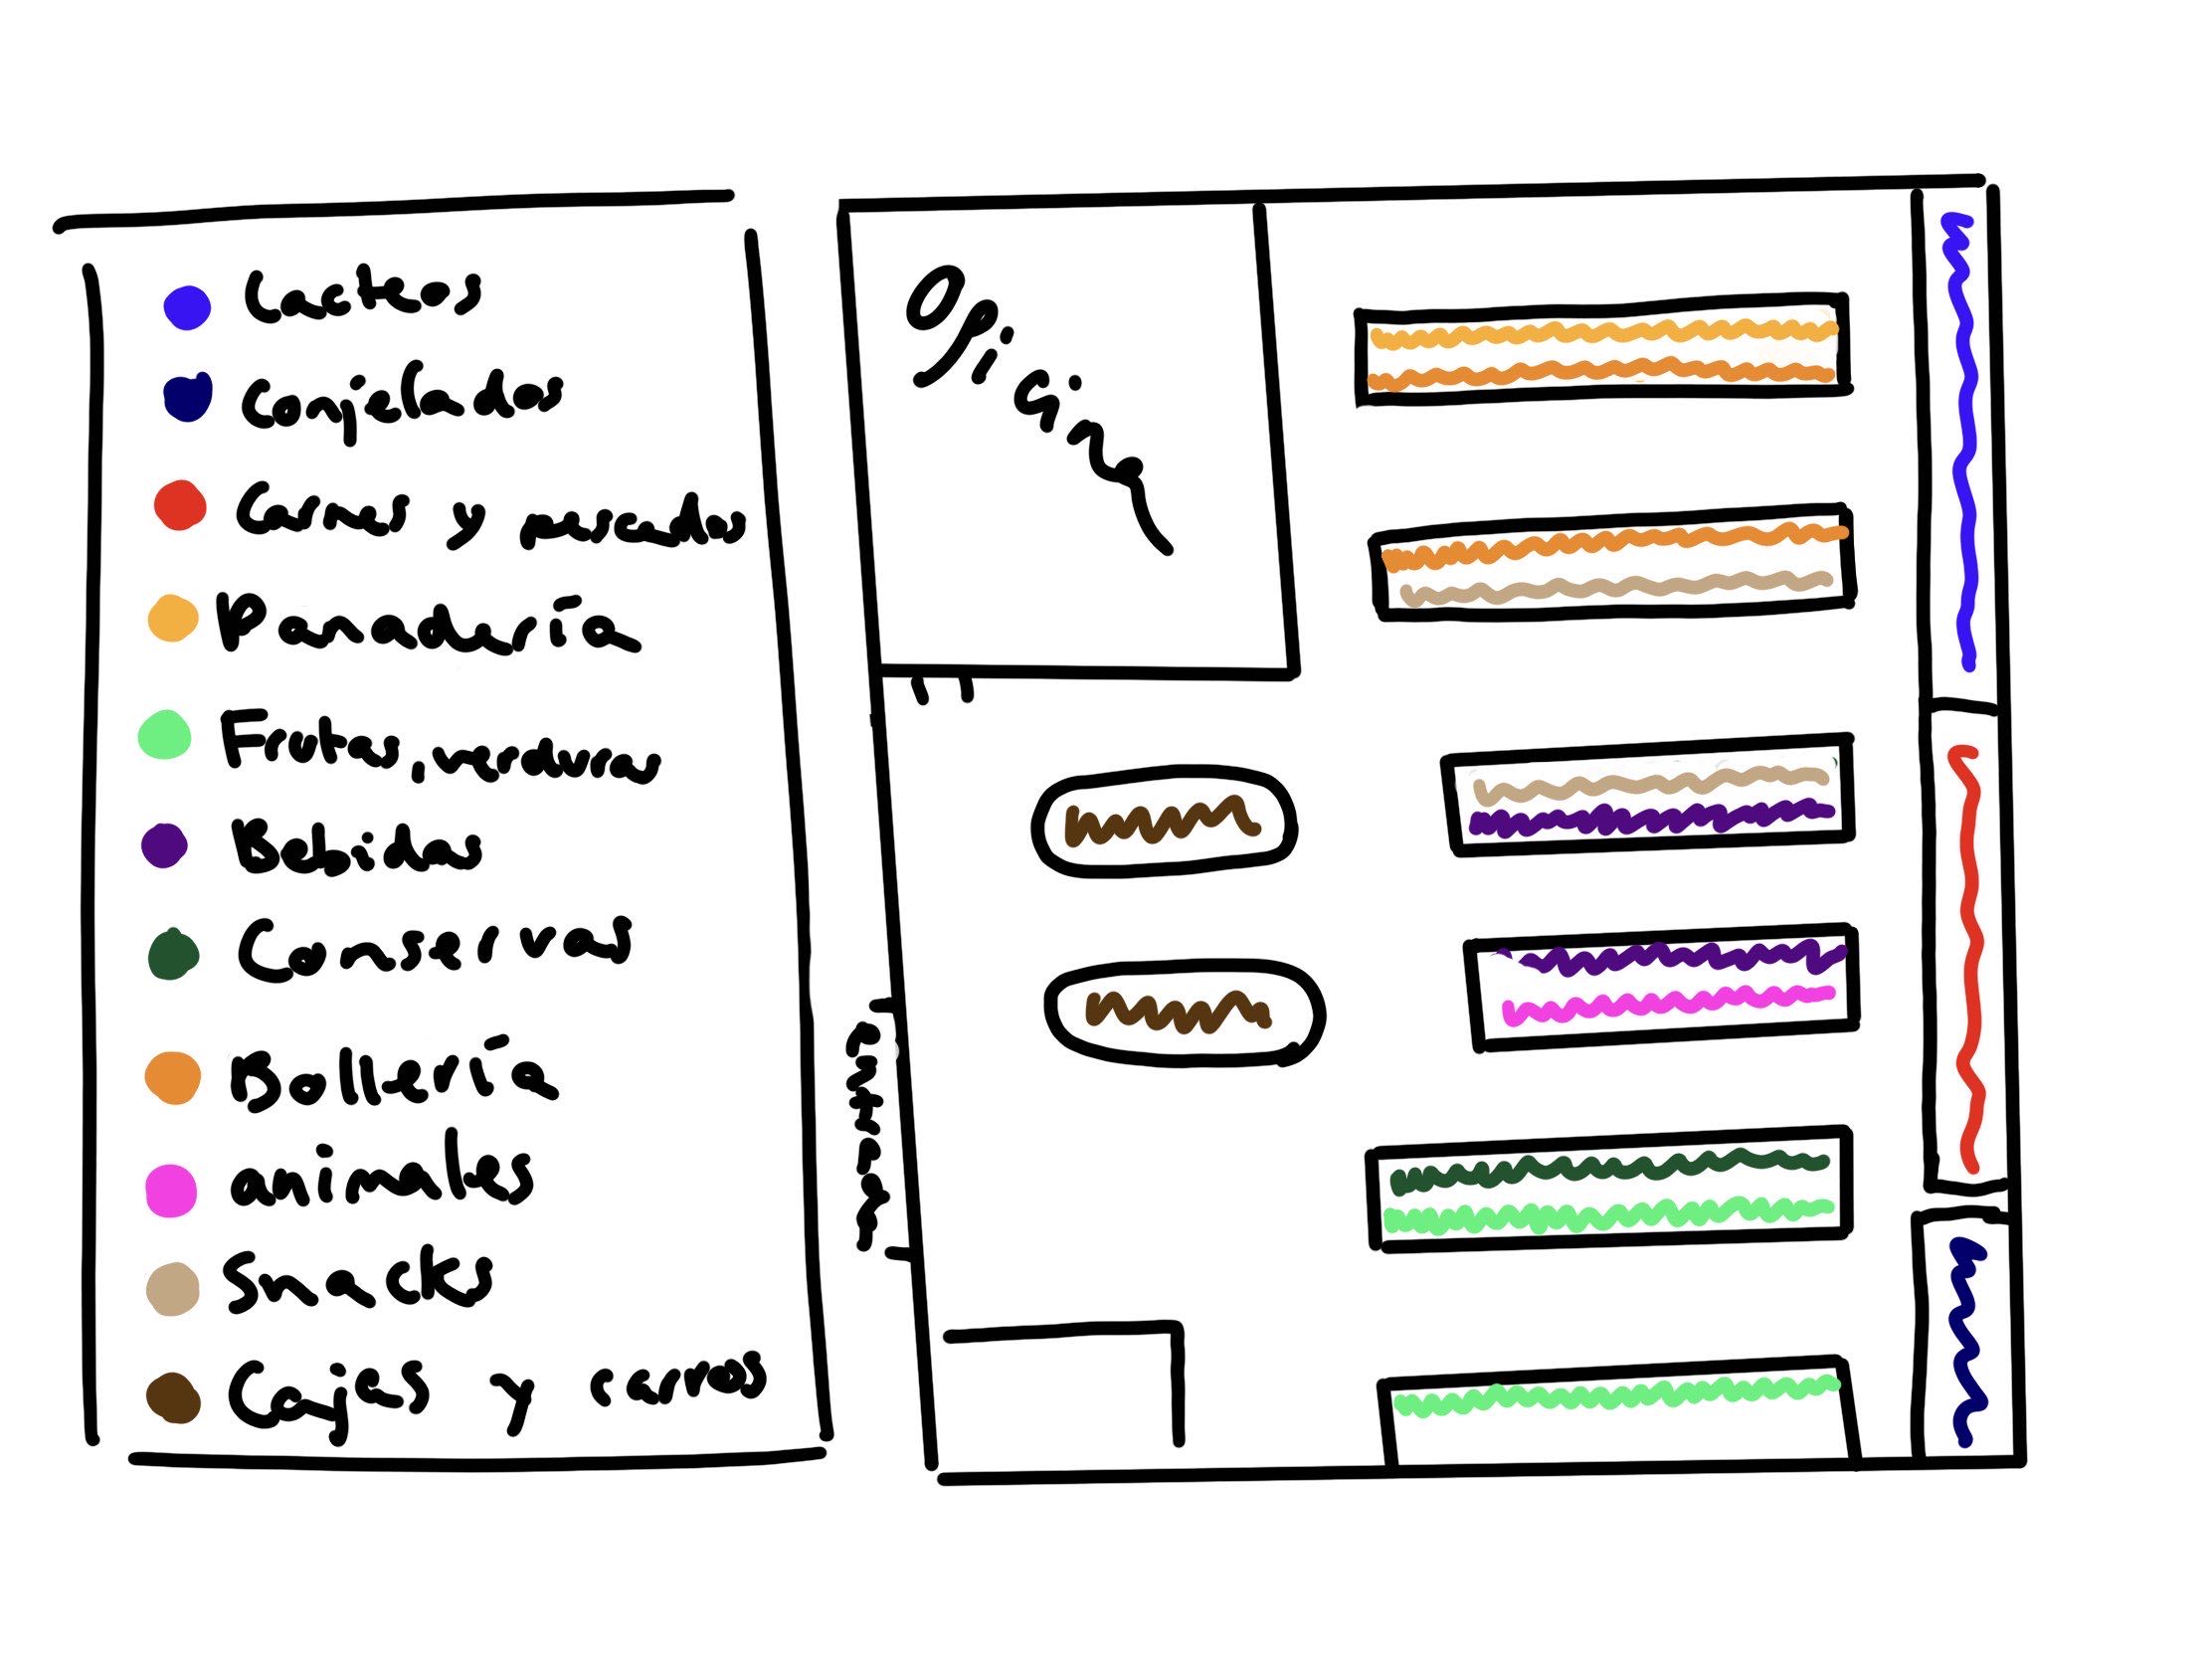 Lacteos
Conjelados
Carnes y pescados
Panadería
Frutas, verduras
Bebidas
Conservas
Bollería
animales
Snacks
Cajas y carros
Oficina
Entrada